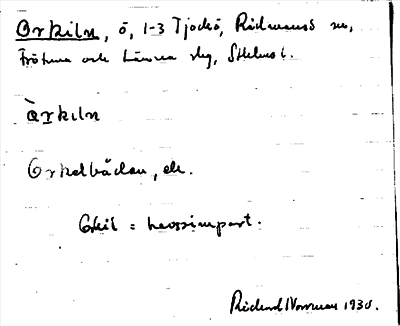 Orkiln, ö, 1-3 Tjockö, Rådmansö sn,
Frötuna och Länna slg, Sthlms l.
Òrkıln
Orkelbådan, ek.
Orkil = havsimport.
Rickard Norrman 1930.